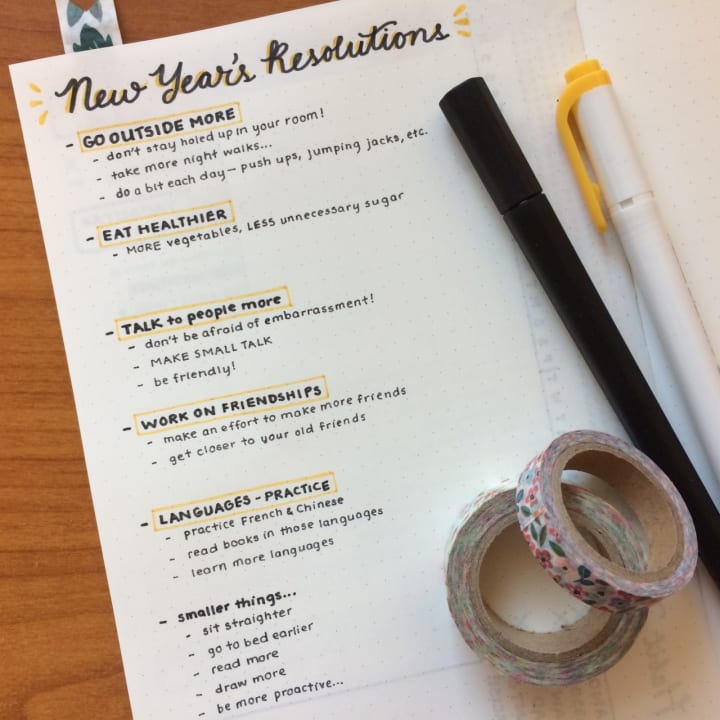 New Year's Resolutions
- GO OUTSIDE MORE
- don't stay holed up in your room!
- take more night walks...
- do a bit each day— push ups, jumping jacks, etc.
- EAT HEALTHIER
- MORE vegetables, LESS unnecessary sugar
- TALK to people more
- don't be afraid of embarrassment!
- MAKE SMALL TALK
- be friendly!
- WORK ON FRIENDSHIPS
- make an effort to make more friends
- get closer to your old friends
- LANGUAGES - PRACTICE
- practice French & Chinese
- read books in those languages
- learn more languages
- smaller things...
- sit straighter
- go to bed earlier
- read more
- draw more
- be more proactive...